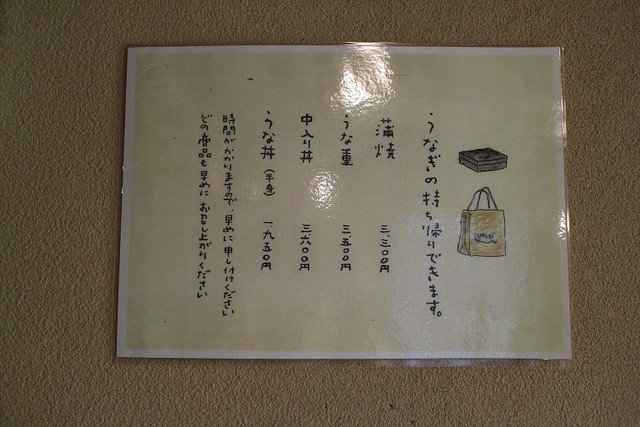 うなぎの持ち帰りできます。
蒲焼 三、三〇〇円
うな重 三、五〇〇円
中入り丼 三、六〇〇円
うな丼(半身) 一、九五〇円
時間がかかりますので、早めに申し付けください
どの商品も早めにお召し上がりください